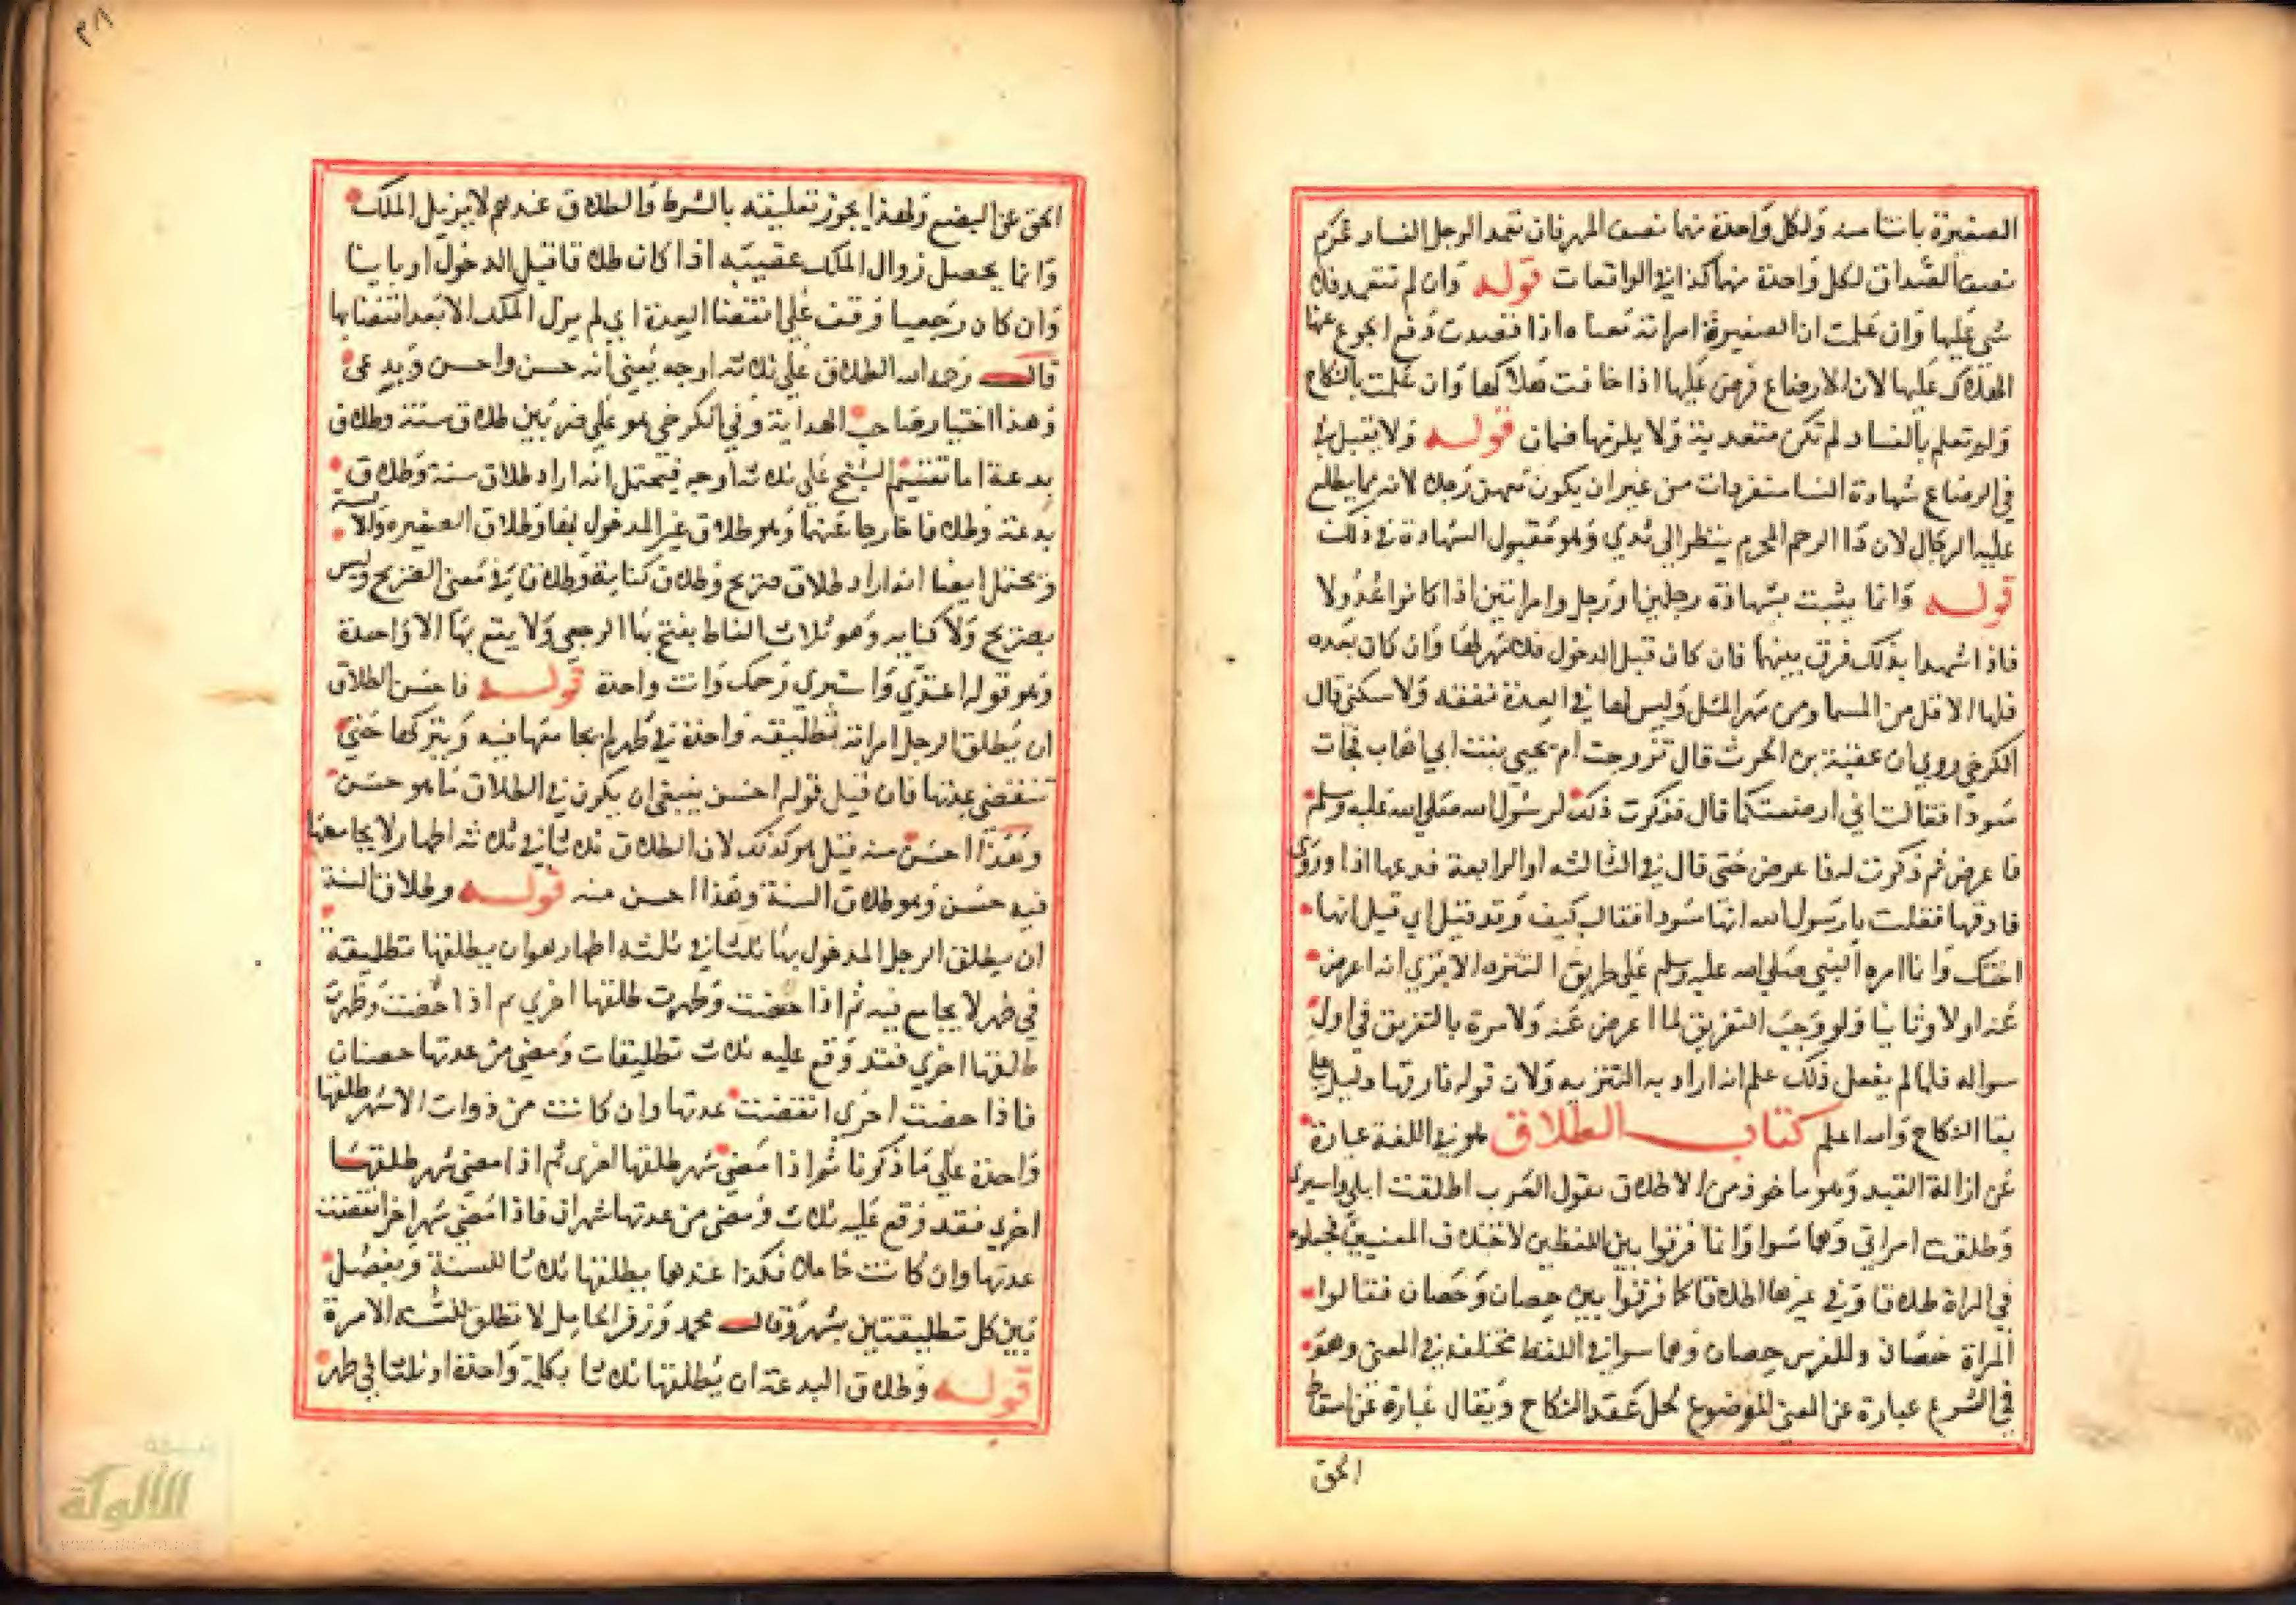 الصغيرة بانتا منه ولكل واحدة منهما نصف المهر فان تعمد الرجل الفساد غرم
نصف الصداق لكل واحدة منهما كذا في الواقعات قوله وان لم تتعمد فلا
شي عليها وان علمت ان الصغيرة امراته معناه اذا قصدت دفع الجوع عنها
الهلاك عليها لان الارضاع فرض عليها اذا خافت هلاكها وان علمت بالنكاح
ولم تعلم بالفساد لم تكن متعدية ولا يلزمها ضمان قوله ولا تقبل
في الرضاع شهادة النسا منفردات من غير ان يكون معهن رجل لانه مما يطلع
عليه الرجال لان ذا الرحم المحرم ينظر الي ثدي وهو مقبول الشهادة في ذلك
قوله وانما يثبت بشهادة رجلين او رجل وامراتين اذا كانوا عدولا
فاذا شهدا بذلك فرق بينهما فان كان قبل الدخول فلا مهر لها وان كان بعده
فلها الاقل من المسما ومن مهر المثل وليس لها في العدة نفقة ولا سكنى قال
الكرخي روي ان عقبة بن الحرث قال تزوجت ام يحيي بنت ابي اهاب فجات
سودا فقالت اني ارضعتكما قال فذكرت ذلك لرسول الله صلي الله عليه وسلم
فاعرض ثم ذكرت له فاعرض حتى قال في الثالثه او الرابعة فدعها اذا وروى
فارقها فقلت يا رسول الله انها سودا فقال كيف وقد قيل اي قيل انها
اختك وانما امره النبي صلي الله عليه وسلم علي طريق التنزه الا ترى انه اعرض
عنه اولا وثانيا فلو وجب التفريق لما اعرض عنه ولامره بالتفريق في اول
سواله فلما لم يفعل ذلك علم انه اراد به التنزيه ولان قوله فارقها دليل على
بقا النكاح والله اعلم كتاب الطلاق هو في اللغة عبارة
عن ازالة القيد وهو ماخوذ من الاطلاق تقول العرب اطلقت ابلي واسيري
وطلقت امراتي وهما سوا وانما فرقوا بين اللفظين لاختلاف المعنيين فجعلوه
في المراة طلاقا وفي غيرها اطلاقا كما فرقوا بين حصان وحصان فقالوا
المراة حصان وللفرس حصان وهما سوا في اللفظ مختلف في المعنى وهو
في الشرع عبارة عن المعنى الموضوع لحل عقد النكاح ويقال عبارة عن اسقاط
الحق
٣٨
الحق عن البضع ولهذا يجوز تعليقه بالشرط والطلاق عندهم لا يزيل الملك
وانما يحصل زوال الملك عقيبه اذا كان طلاقا قبل الدخول او باينا
وان كان رجعيا وقف علي انقضا العدة اي لم يزل الملك الا بعد انقضائها
قال رحمه الله الطلاق علي ثلاثه اوجه يعني انه حسن واحسن وبدعى
وهذا اختيار صاحب الهداية وفي الكرخي هو علي ضربين طلاق سنة وطلاق
بدعة اما تقسيم الشيخ علي ثلاثة اوجه فيحتمل انه اراد طلاق سنة وطلاق
بدعة وطلاقا خارجا عنهما وهو طلاق غير المدخول بها وطلاق الصغيره والايسه
ويحتمل ايضا انه اراد طلاق صريح وطلاق كناية وطلاقا في معنى الصريح وليس
بصريح ولا كنايه وهو ثلاث الفاظ يقع بها الرجعي ولا يقع بها الا واحدة
وهو قوله اعتدي واستبري رحمك وانت واحدة قوله فاحسن الطلاق
ان يطلق الرجل امراته تطليقة واحدة في طهر لم يجامعها فيه ويتركها حتى
تنقضي عدتها فان قيل قوله احسن ينبغي ان يكون في الطلاق ما هو حسن
وهذا احسن منه قيل هو كذلك لان الطلاق ثلاثا في ثلاثة اطهار لا يجامعها
فيه حسن وهو طلاق السنة وهذا احسن منه قوله وطلاق السنة
ان يطلق الرجل المدخول بها ثلاثا في ثلثه اطهار هو ان يطلقها تطليقة
في طهر لا يجامع فيه ثم اذا حضت وطهرت طلقها اخري ثم اذا حضت وطهرت
طلقها اخري فقد وقع عليه ثلاث تطليقات ومضي من عدتها حيضتان
فاذا حضت اخرى انقضت عدتها وان كانت من ذوات الاشهر طلقها
واحدة علي ما ذكرنا ثم اذا مضي شهر طلقها اخرى ثم اذا مضي شهر طلقها
اخري فقد وقع عليه ثلاث ومضى من عدتها شهران فاذا مضي شهر اخر انقضت
عدتها وان كانت حاملا فكذا عندهما يطلقها ثلاثا للسنة ويفصل
بين كل تطليقتين بشهر وقال محمد وزفر الحامل لا تطلق للسنه الا مرة
قوله وطلاق البدعة ان يطلقها ثلاثا بكلمة واحدة او ثلثا في طهر
الألوكة